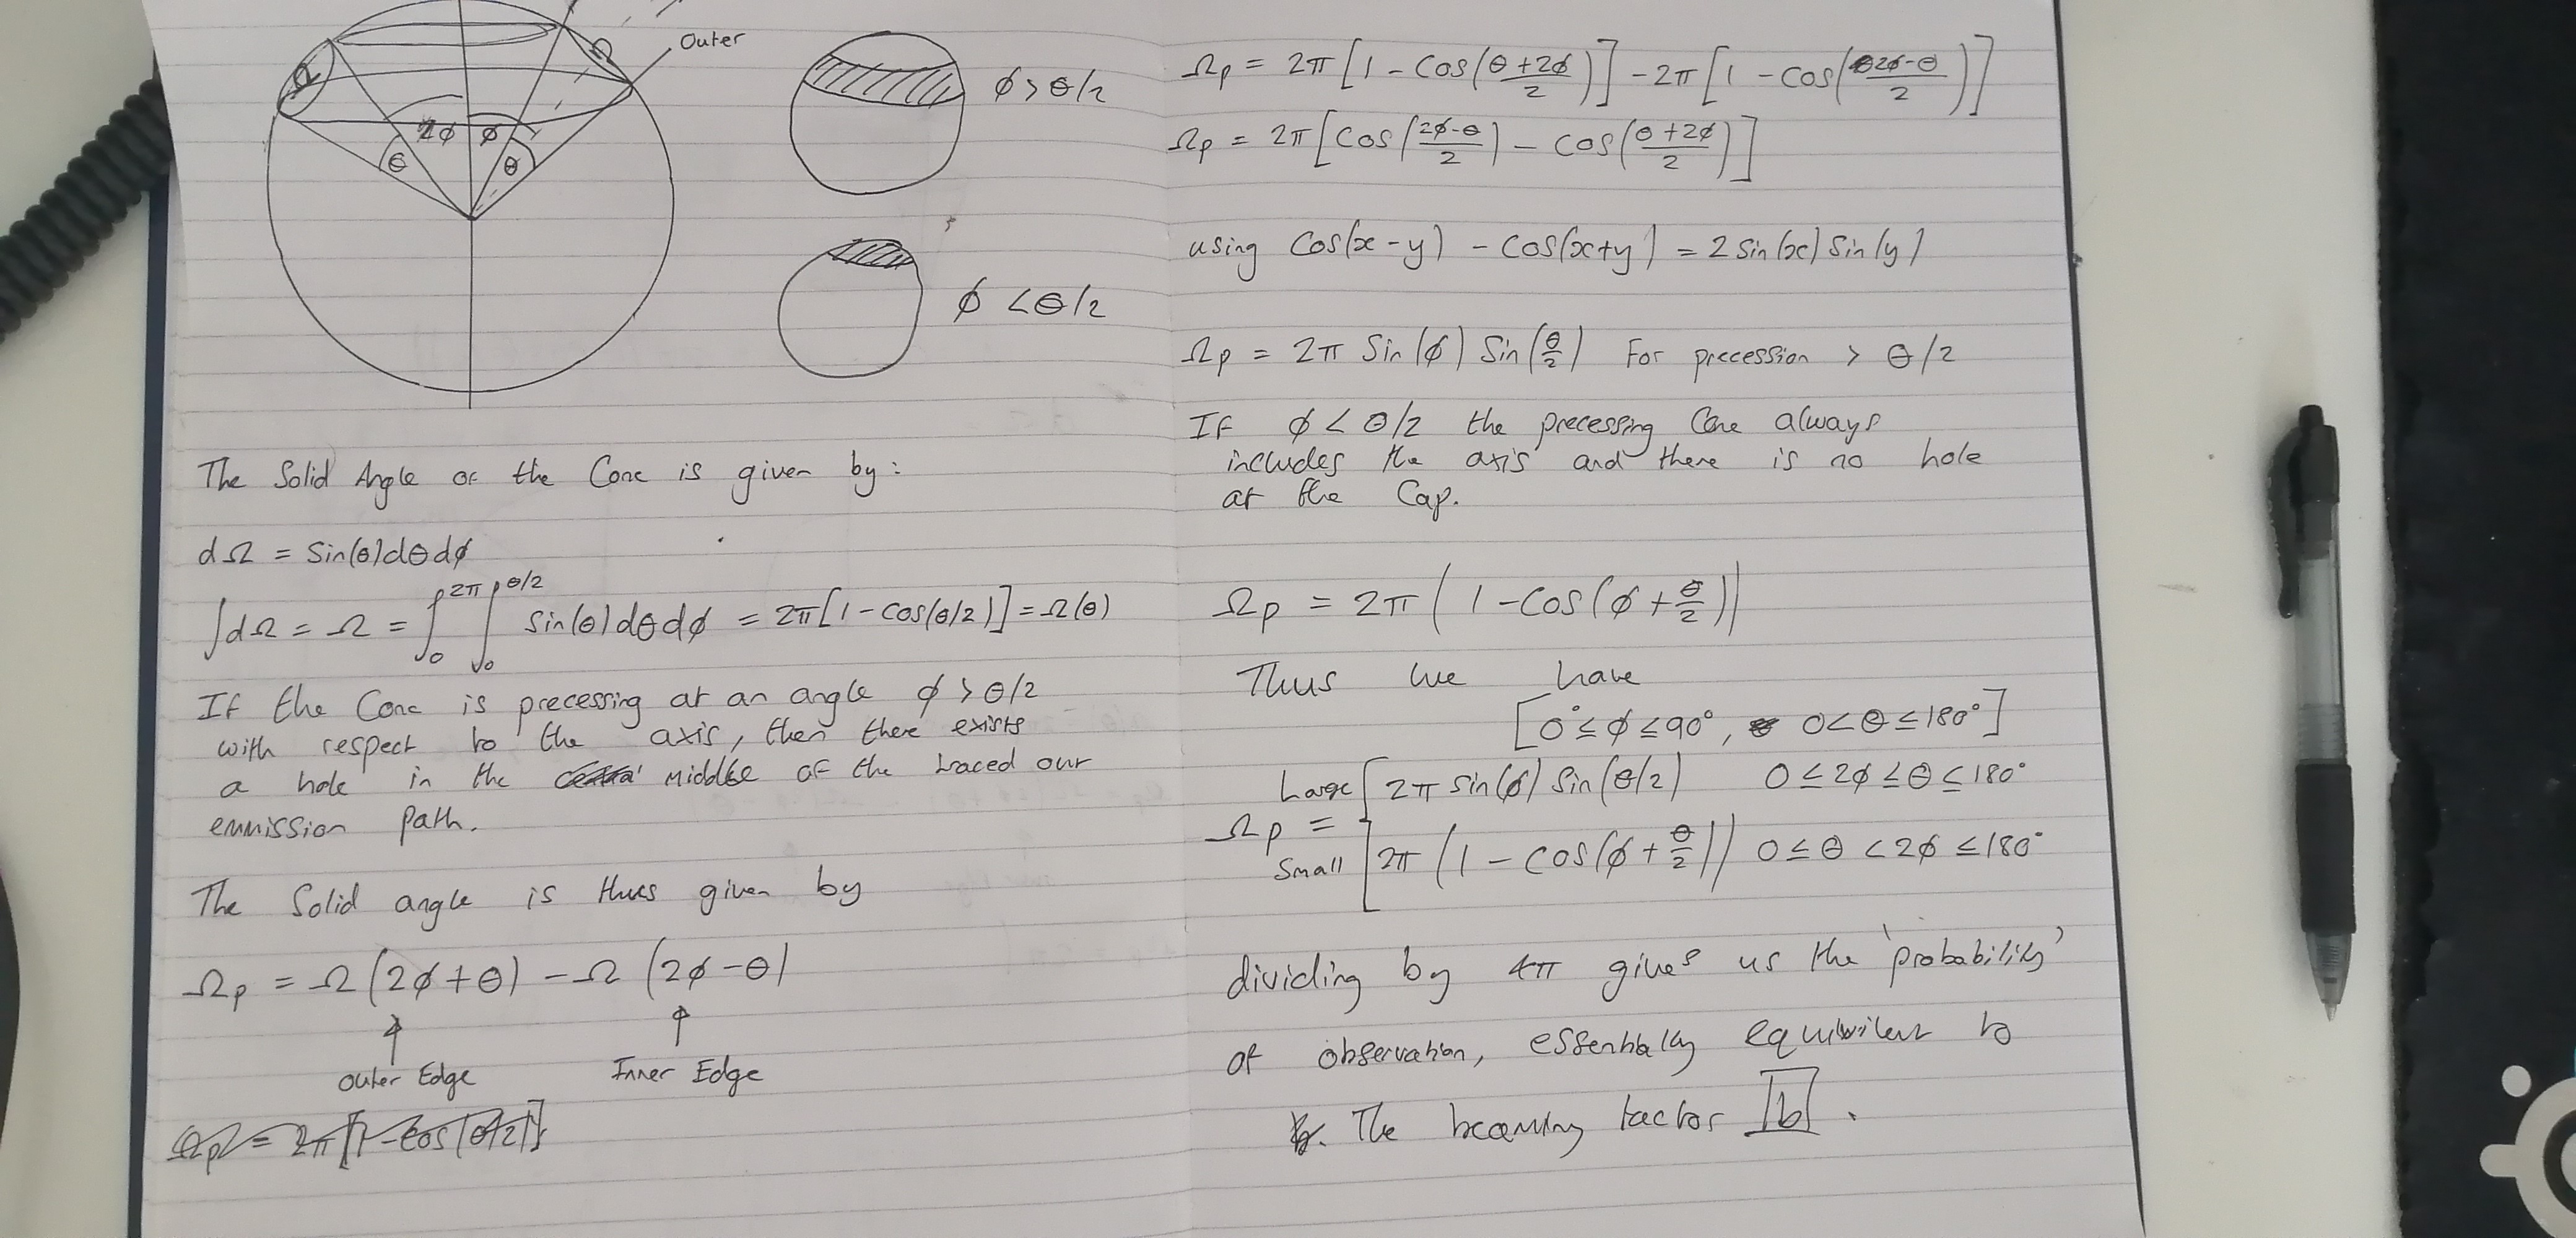 Outer
Ω
Ω
2φ φ
θ θ
φ > θ/2
φ < θ/2
The Solid Angle of the Cone is given by:
dΩ = Sin(θ)dθdφ
∫dΩ = Ω = ∫₀^2π ∫₀^θ/2 Sin(θ)dθdφ = 2π[1-cos(θ/2)] = Ω(θ)
If the Cone is precessing at an angle φ > θ/2
with respect to the axis, then there exists
a hole in the middle of the traced out
emmission path.
The Solid angle is thus given by
Ωp = Ω(2φ+θ) - Ω(2φ-θ)
Outer Edge Inner Edge
Ωp = 2π[1-cos(θ/2)]
Ωp = 2π[1 - Cos((θ+2φ)/2)] - 2π[1 - cos((2φ-θ)/2)]
Ωp = 2π[Cos((2φ-θ)/2) - cos((θ+2φ)/2)]
using Cos(x-y) - Cos(x+y) = 2 Sin(x) Sin(y)
Ωp = 2π Sin(φ) Sin(θ/2) For precession > θ/2
If φ < θ/2 the precessing Cone always
includes the axis and there is no hole
at the Cap.
Ωp = 2π(1-Cos(φ+θ/2))
Thus we have
[0° ≤ φ ≤ 90°, 0 < θ ≤ 180°]
Large 2π Sin(φ) Sin(θ/2) 0 ≤ 2φ ≤ θ ≤ 180°
Ωp =
Small 2π(1 - cos(φ+θ/2)) 0 ≤ θ < 2φ ≤ 180°
dividing by 4π gives us the 'probability'
of observation, essentially equivilent to
The beaming factor b.